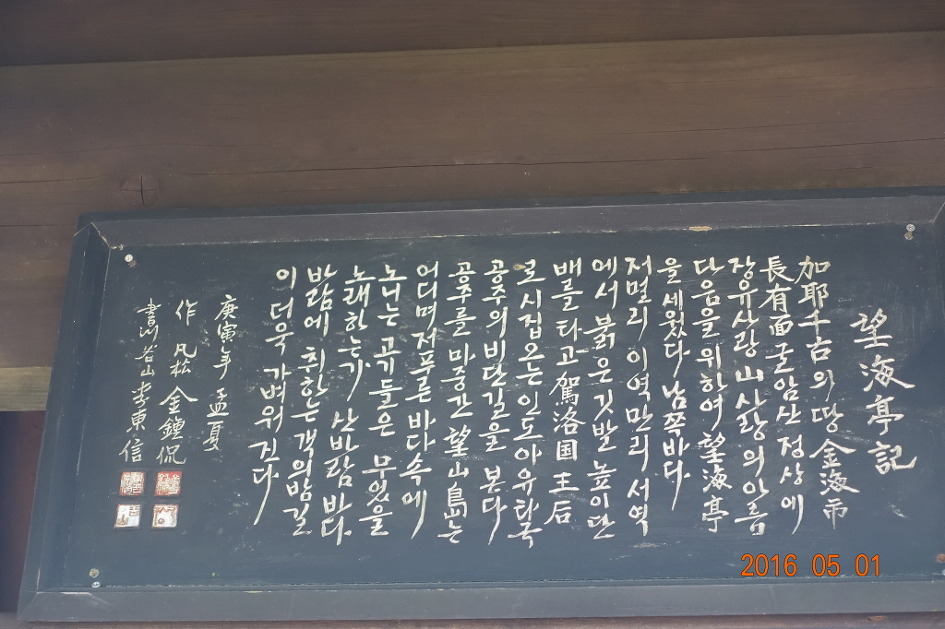 望海亭記
加耶千古의땅金海市
長有面굴암산정상에
장유사랑山사랑의아름
다움을위하여望海亭
을세웠다남쪽바다
저멀리이역만리서역
에서붉은깃발높이단
배를타고駕洛国王后
로시집온는인도아유타국
공주의비단길을본다
공주를마중간望山島는
어디며저푸른바다속에
노니는고기들은무엇을
노래하는가산바람바다
바람에취한는객의밤길
이더욱가벼워진다
庚寅年孟夏
作凡松金鍾侃
書 谷山李東信
2016 05 01